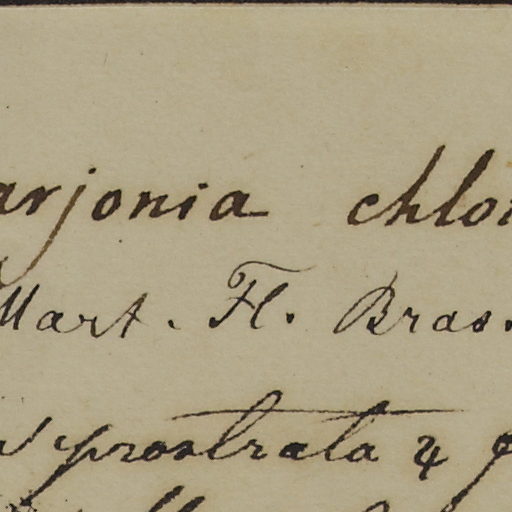 arjonia chlor
Mart. Fl. Bras.
prostrata ♃